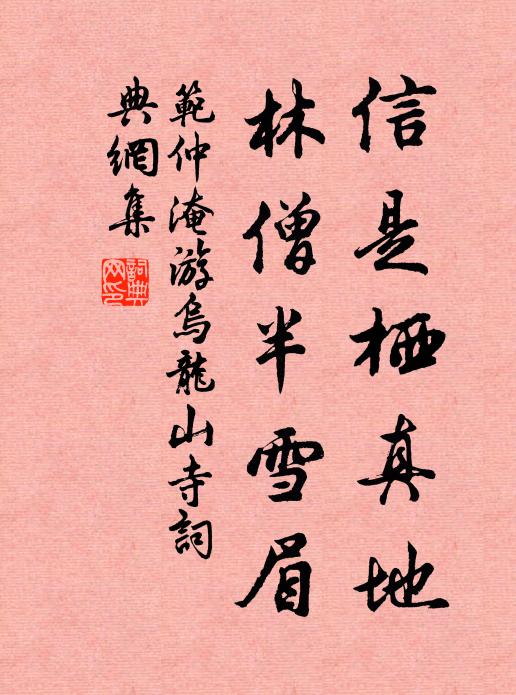 信是栖真地
林僧半雪眉
範仲淹游烏龍山寺詞
典網集
詞典
網印